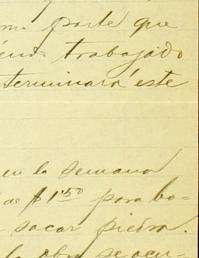 parte que
trabajado
terminará este
en la semana
de $1.50 para ba-
sacar piedra.
la obra se ocu-